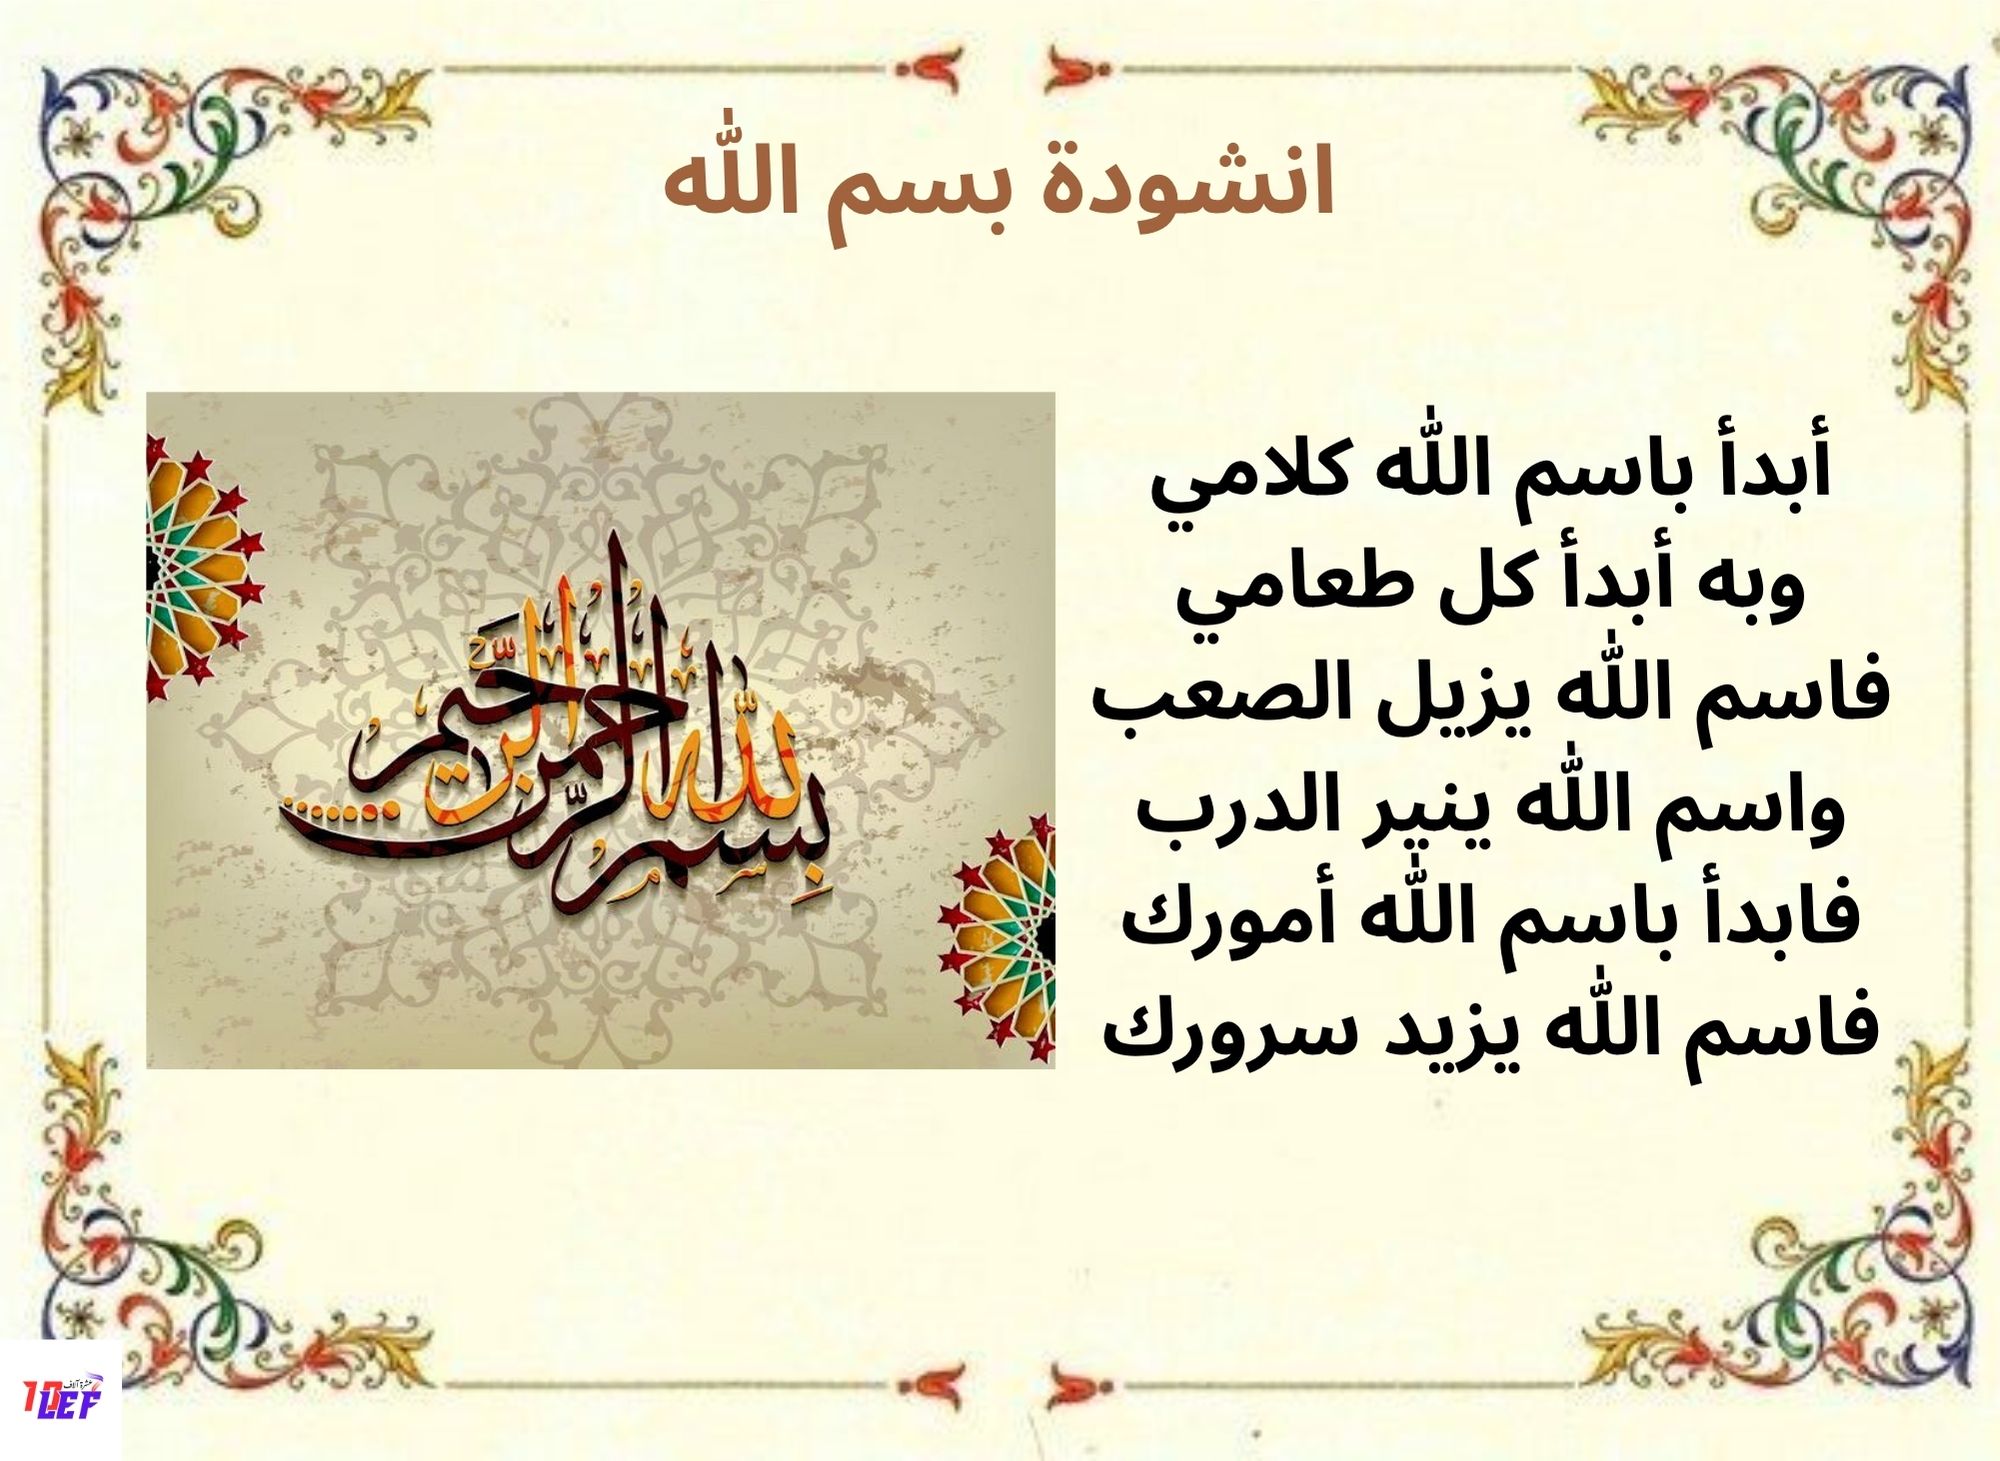 انشودة بسم الله
أبدأ باسم الله كلامي
وبه أبدأ كل طعامي
فاسم الله يزيل الصعب
واسم الله ينير الدرب
فابدأ باسم الله أمورك
فاسم الله يزيد سرورك
بسم الله الرحمن الرحيم
عشرة آلاف
10LEF